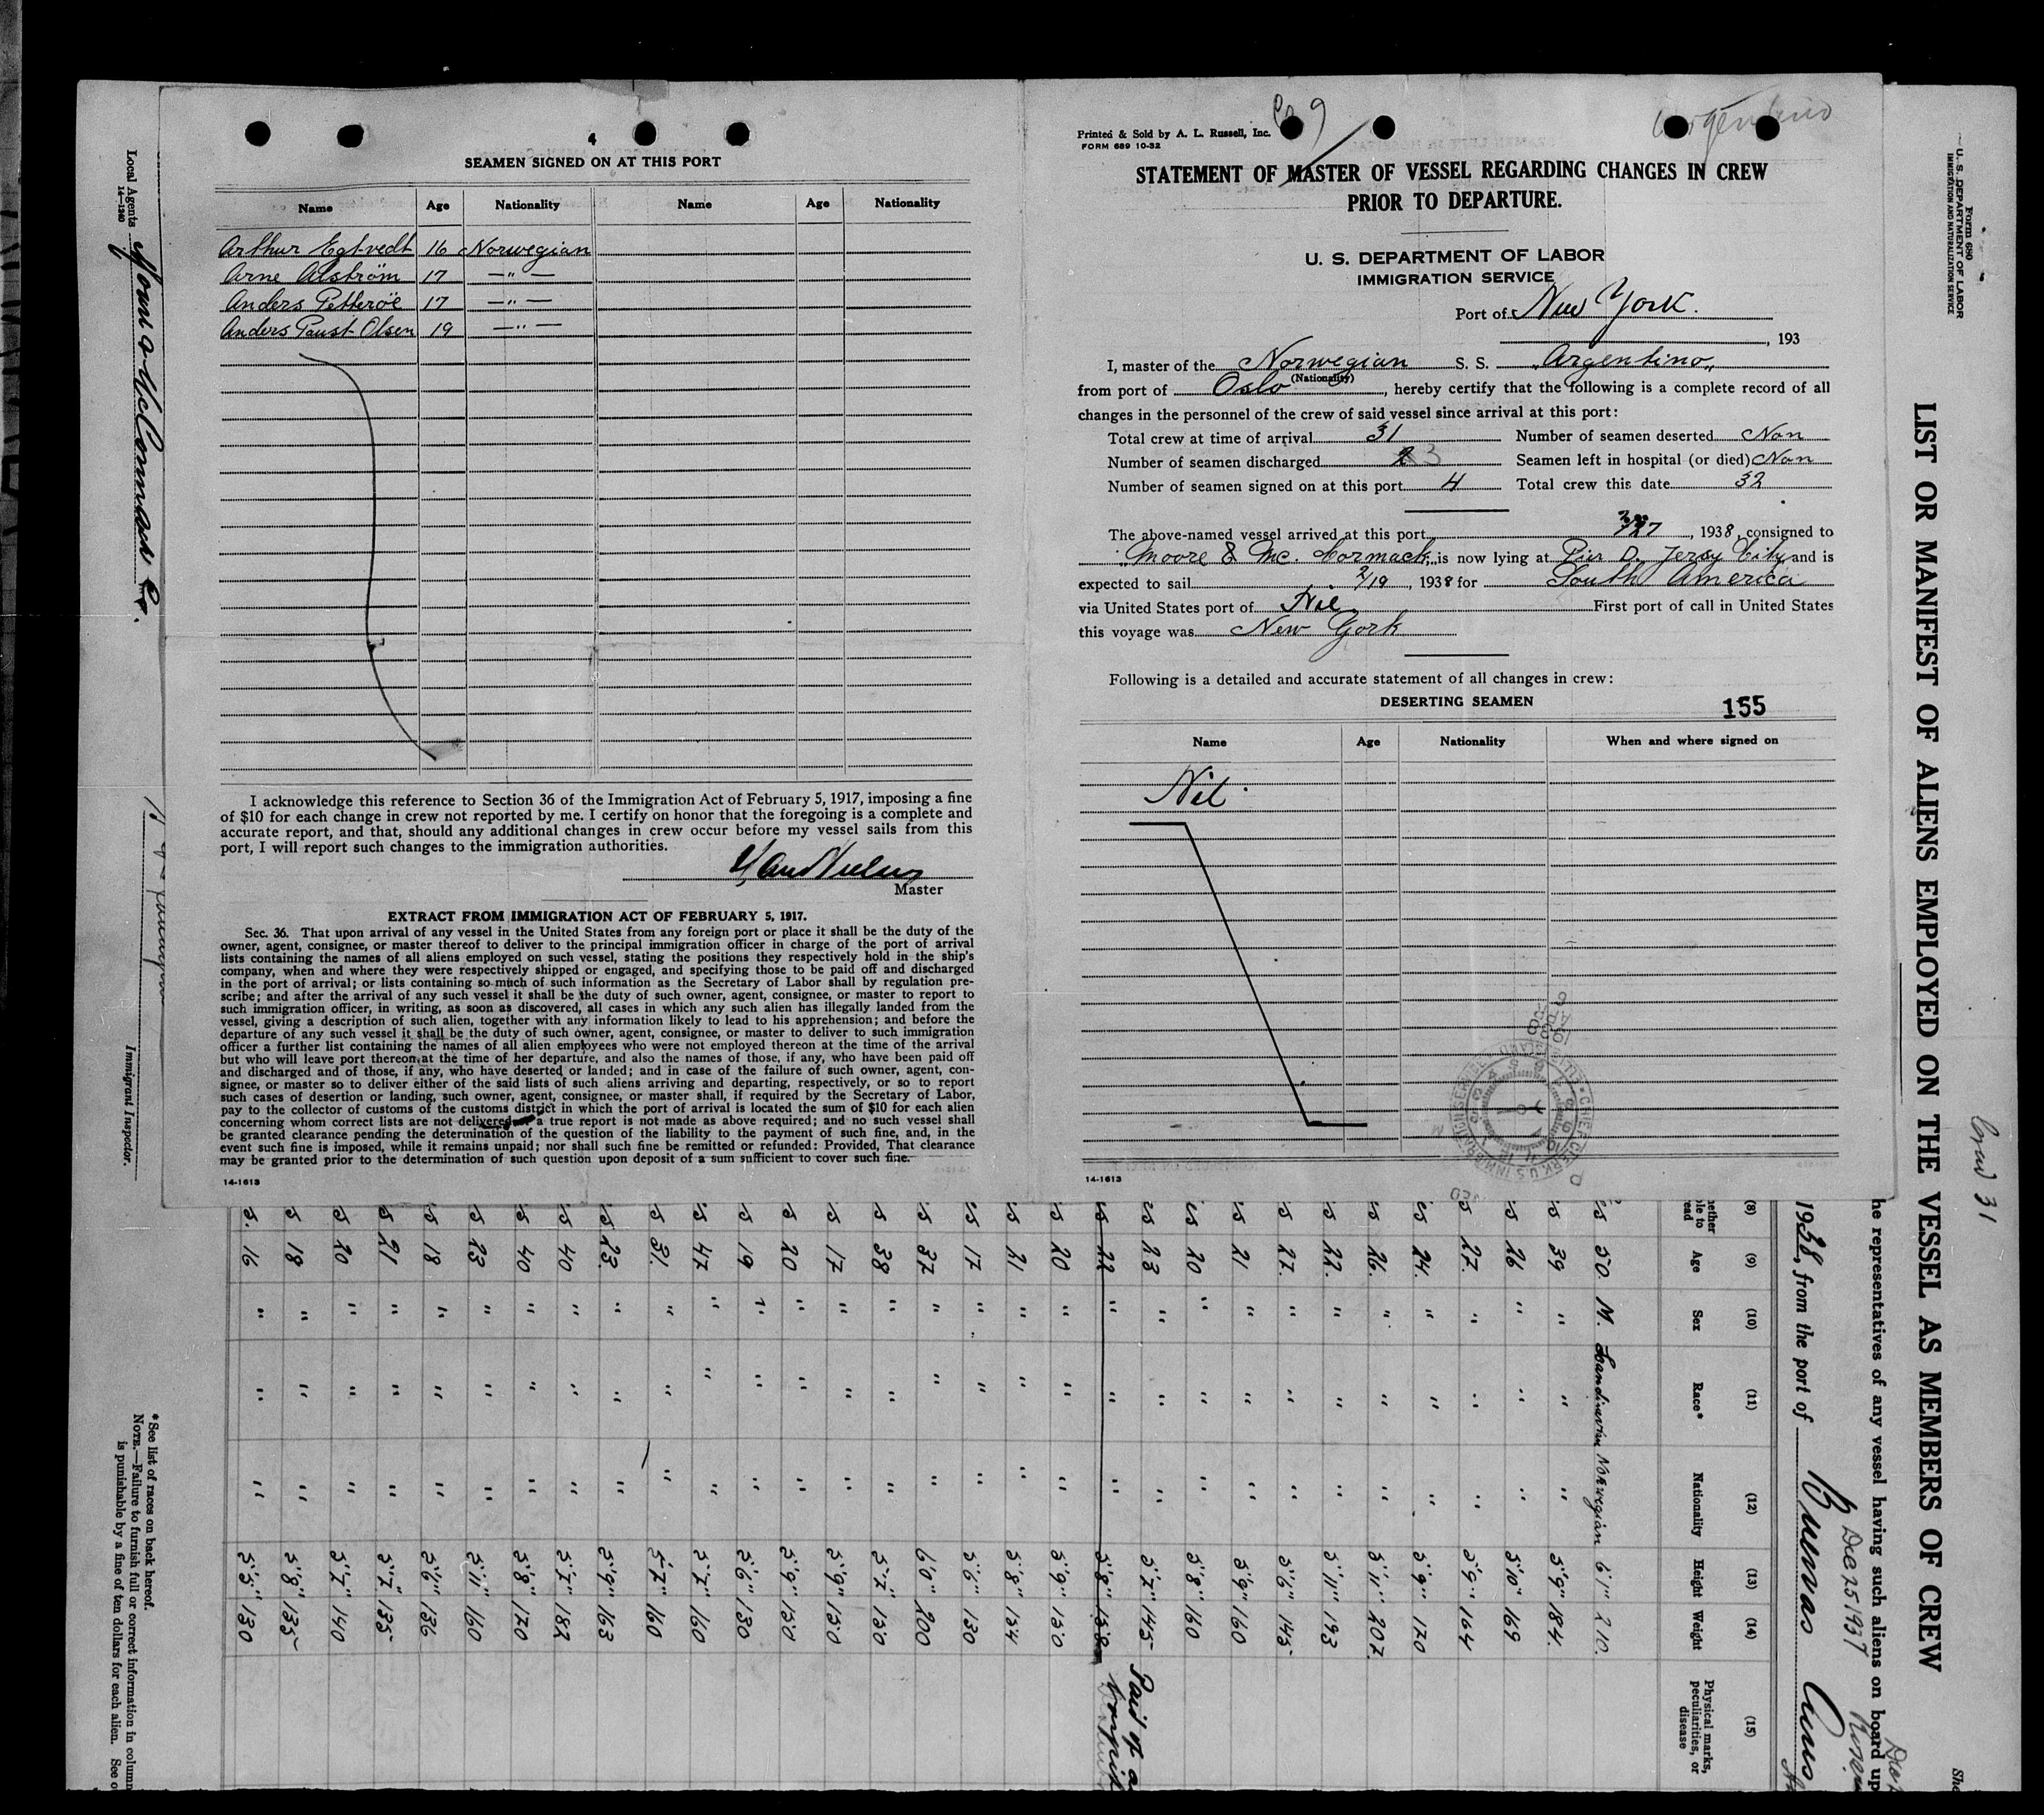 4
SEAMEN SIGNED ON AT THIS PORT
Name Age Nationality Name Age Nationality
Arthur Egtvedt 16 Norwegian
Arne Alstrøm 17 — " —
Anders Petterøe 17 — " —
Anders Faust Olsen 19 — " —
I acknowledge this reference to Section 36 of the Immigration Act of February 5, 1917, imposing a fine
of $10 for each change in crew not reported by me. I certify on honor that the foregoing is a complete and
accurate report, and that, should any additional changes in crew occur before my vessel sails from this
port, I will report such changes to the immigration authorities.
Master
EXTRACT FROM IMMIGRATION ACT OF FEBRUARY 5, 1917.
Sec. 36. That upon arrival of any vessel in the United States from any foreign port or place it shall be the duty of the
owner, agent, consignee, or master thereof to deliver to the principal immigration officer in charge of the port of arrival
lists containing the names of all aliens employed on such vessel, stating the positions they respectively hold in the ship's
company, when and where they were respectively shipped or engaged, and specifying those to be paid off and discharged
in the port of arrival; or lists containing so much of such information as the Secretary of Labor shall by regulation pre-
scribe; and after the arrival of any such vessel it shall be the duty of such owner, agent, consignee, or master to report to
such immigration officer, in writing, as soon as discovered, all cases in which any such alien has illegally landed from the
vessel, giving a description of such alien, together with any information likely to lead to his apprehension; and before the
departure of any such vessel it shall be the duty of such owner, agent, consignee, or master to deliver to such immigration
officer a further list containing the names of all alien employees who were not employed thereon at the time of the arrival
but who will leave port thereon at the time of her departure, and also the names of those, if any, who have been paid off
and discharged and of those, if any, who have deserted or landed; and in case of the failure of such owner, agent, con-
signee, or master so to deliver either of the said lists of such aliens arriving and departing, respectively, or so to report
such cases of desertion or landing, such owner, agent, consignee, or master shall, if required by the Secretary of Labor,
pay to the collector of customs of the customs district in which the port of arrival is located the sum of $10 for each alien
concerning whom correct lists are not delivered or a true report is not made as above required; and no such vessel shall
be granted clearance pending the determination of the question of the liability to the payment of such fine, and, in the
event such fine is imposed, while it remains unpaid; nor shall such fine be remitted or refunded: Provided, That clearance
may be granted prior to the determination of such question upon deposit of a sum sufficient to cover such fine.
14-1613
Argentino
Printed & Sold by A. L. Russell, Inc.
FORM 689 10-32
STATEMENT OF MASTER OF VESSEL REGARDING CHANGES IN CREW
PRIOR TO DEPARTURE.
U. S. DEPARTMENT OF LABOR
IMMIGRATION SERVICE
Port of New York.
, 193
I, master of the Norwegian S. S. "Argentino"
(Nationality)
from port of Oslo, hereby certify that the following is a complete record of all
changes in the personnel of the crew of said vessel since arrival at this port:
Total crew at time of arrival 31 Number of seamen deserted Non
Number of seamen discharged 3 Seamen left in hospital (or died) Non
Number of seamen signed on at this port 4 Total crew this date 32
The above-named vessel arrived at this port , 1938, consigned to
"Moore & Mc. Cormack", is now lying at Pier D, Jersy City and is
expected to sail 2/19, 1938 for South America
via United States port of Nil First port of call in United States
this voyage was New York
Following is a detailed and accurate statement of all changes in crew:
DESERTING SEAMEN
155
Name Age Nationality When and where signed on
Nil
14-1613
Form 680
U. S. DEPARTMENT OF LABOR
IMMIGRATION AND NATURALIZATION SERVICE
LIST OR MANIFEST OF ALIENS EMPLOYED ON THE VESSEL AS MEMBERS OF CREW
Crew 31
he representatives of any vessel having such aliens on board up
1938, from the port of Buenos Aires
Dec 25 1937
(8) (9) (10) (11) (12) (13) (14) (15)
Age Sex Race* Nationality Height Weight Physical marks, peculiarities, or disease
50. M. Scandinavian Norwegian 6'1" 210.
39 " " " 5'9" 184.
26 " " " 5'10" 169
27. " " " 5'9" 164
24. " " " 5'9" 170
26. " " " 5'11" 207.
22. " " " 5'11" 193
27. " " " 5'6" 145
21 " " " 5'9" 160
20 " " " 5'8" 160
23 " " " 5'7" 145 Paid of
22 " " " 5'8" 158
20 " " " 5'9" 150
21 " " " 5'8" 154
17 " " " 5'6" 130
37 " " " 6'0" 200
38 " " " 5'7" 150
17 " " " 5'9" 150
20 " " " 5'9" 150
19 " " " 5'6" 130
47 " " " 5'7" 160
31. " " " 5'7" 160
23. " " " 5'9" 163
40 " " " 5'7" 182
40 " " " 5'8" 170
23 " " " 5'11" 160
18 " " " 5'6" 136
21 " " " 5'7" 135
20 " " " 5'7" 140
18 " " " 5'8" 135
16 " " " 5'5" 130
Local Agents Moore & McCormack Co.
14-1240
Immigrant Inspector.
*See list of races on back hereof.
NOTE.—Failure to furnish full or correct information in column
is punishable by a fine of ten dollars for each alien. See